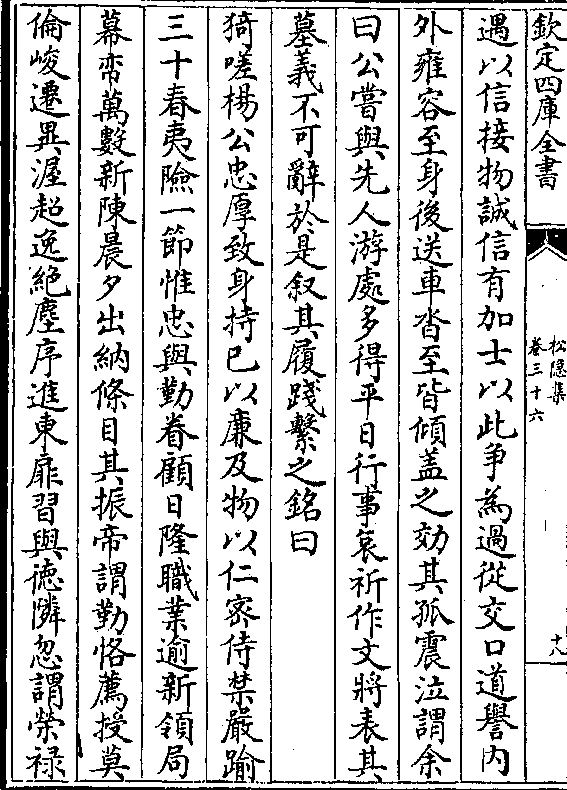 欽定四庫全書
松隱集
卷三十六
十八
遇以信接物誠信有加士以此爭為過從交口道譽内
外雍容至身後送車沓至皆傾盖之効其孤震泣謂余
曰公嘗與先人游處多得平日行事㤅祈作文將表其
墓義不可辭於是叙其履踐繫之銘曰
猗嗟楊公忠厚致身持已以亷及物以仁宻侍禁嚴踰
三十春夷險一節惟忠與勤眷顧日隆職業逾新領局
幕帟萬數新陳晨夕出納條目其振帝謂勤恪薦授莫
倫峻遷異渥超逸絶塵序進東扉習與徳隣忽謂榮禄